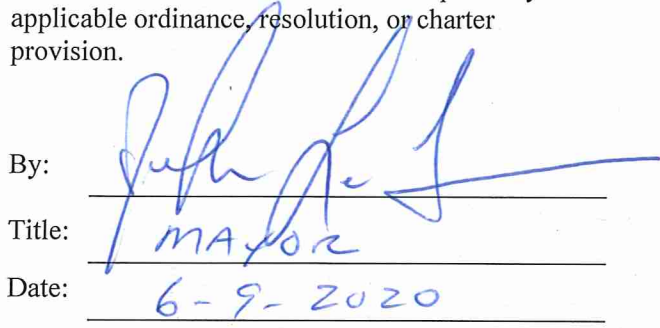 applicable ordinance, resolution, or charter
provision.
By:
Title: MAYOR
Date: 6-9-2020